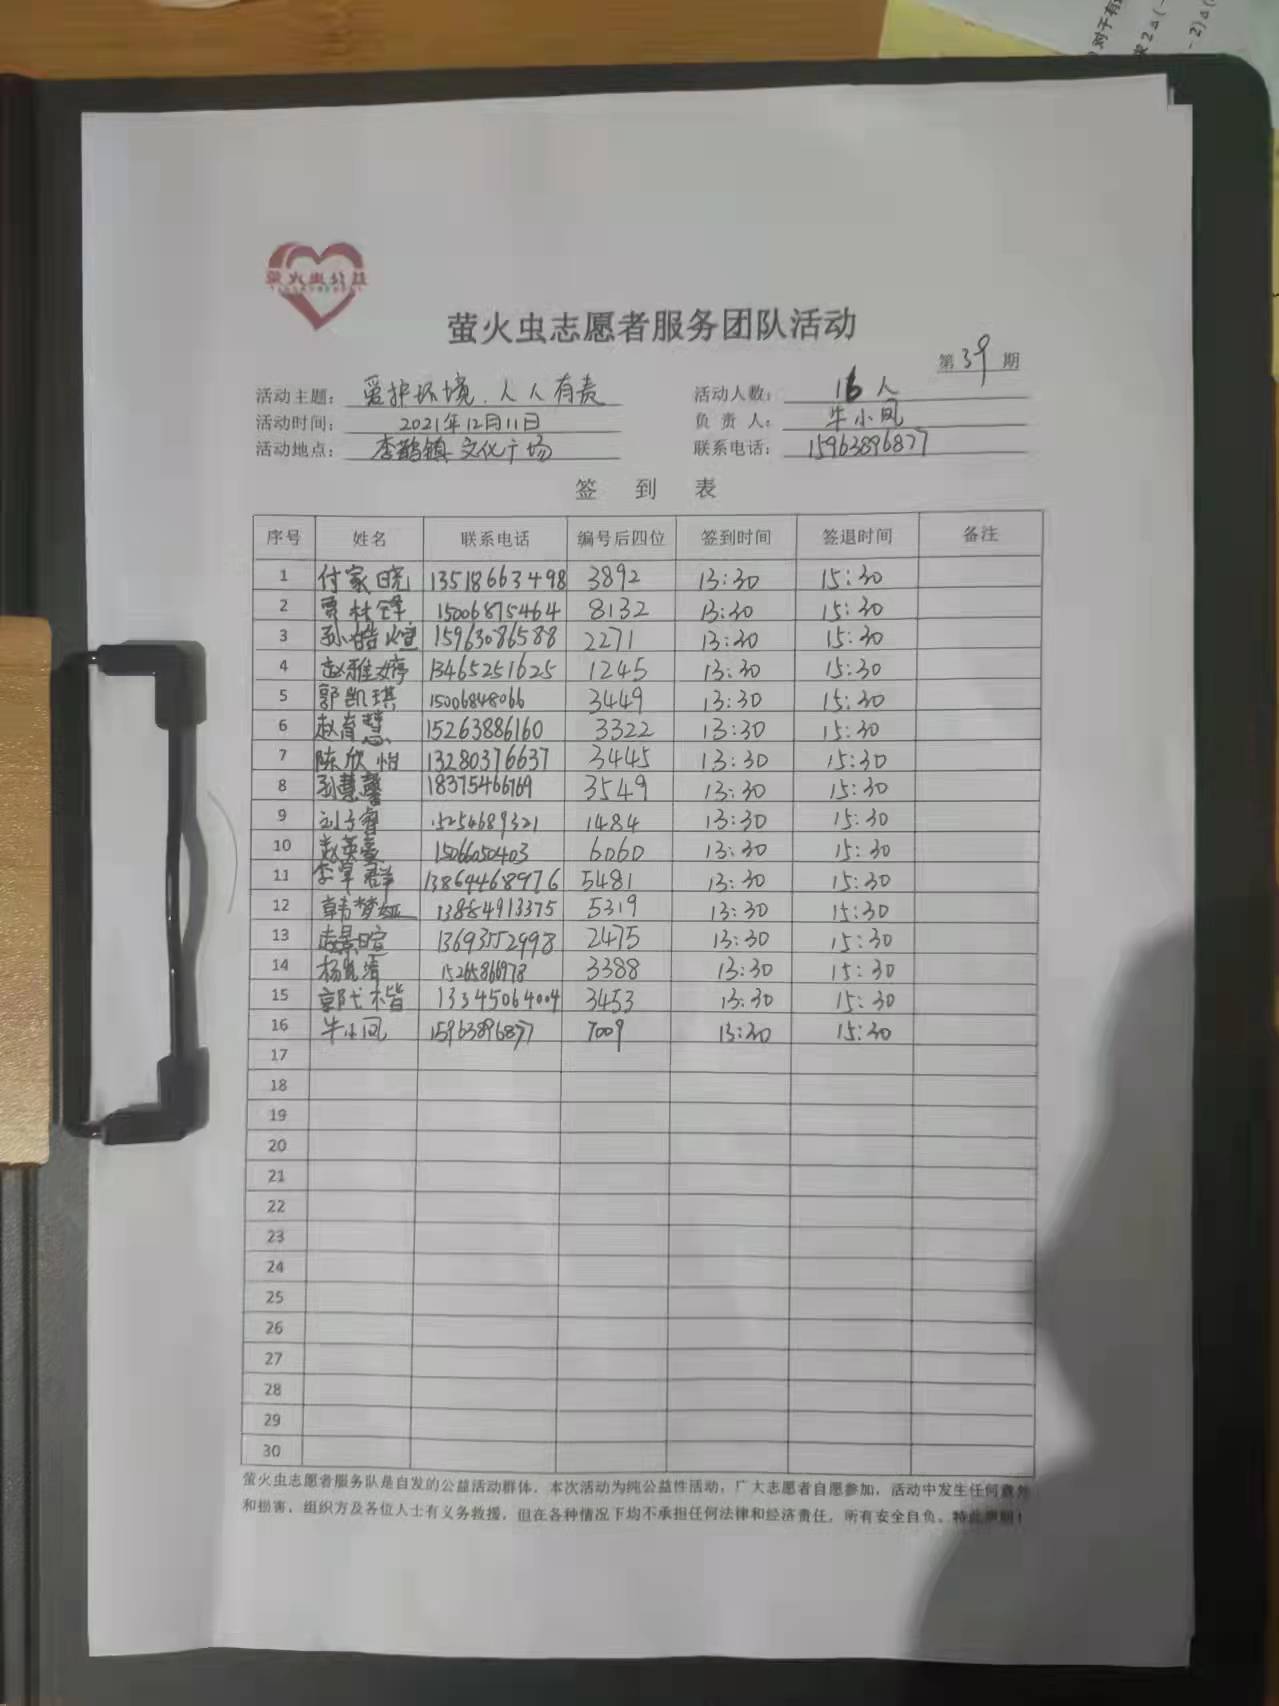 对于有
求2△(-
-2)△(
萤火虫公益
萤火虫志愿者服务团队活动
第39期
活动主题: 爱护环境、人人有责 活动人数: 16人
活动时间: 2021年12月11日 负责人: 牛小凤
活动地点: 李鹊镇文化广场 联系电话: 15963896877
签到表
序号 姓名 联系电话 编号后四位 签到时间 签退时间 备注
1 付家晓 13518663498 3892 13:30 15:30
2 贾林铎 15006875464 8132 13:30 15:30
3 孙皓煊 15963086588 2271 13:30 15:30
4 赵雅婷 13465251625 1245 13:30 15:30
5 郭凯琪 15006848066 3449 13:30 15:30
6 赵育慧 15263886160 3322 13:30 15:30
7 陈欣怡 13280376637 3445 13:30 15:30
8 孙慧馨 18375466769 3549 13:30 15:30
9 刘子睿 15254689321 1484 13:30 15:30
10 赵英豪 15066050403 6060 13:30 15:30
11 李宰群 13864468976 5481 13:30 15:30
12 韩梦娅 13884913375 5319 13:30 15:30
13 景暄 13693552998 2475 13:30 15:30
14 杨凯 15265866978 3388 13:30 15:30
15 郭代楷 13345064004 3453 13:30 15:30
16 牛小凤 15963896877 7009 13:30 15:30
17
18
19
20
21
22
23
24
25
26
27
28
29
30
萤火虫志愿者服务队是自发的公益活动群体，本次活动为纯公益性活动，广大志愿者自愿参加，活动中发生任何意外
和损害，组织方及各位人士有义务救援，但在各种情况下均不承担任何法律和经济责任，所有安全自负。特此声明！